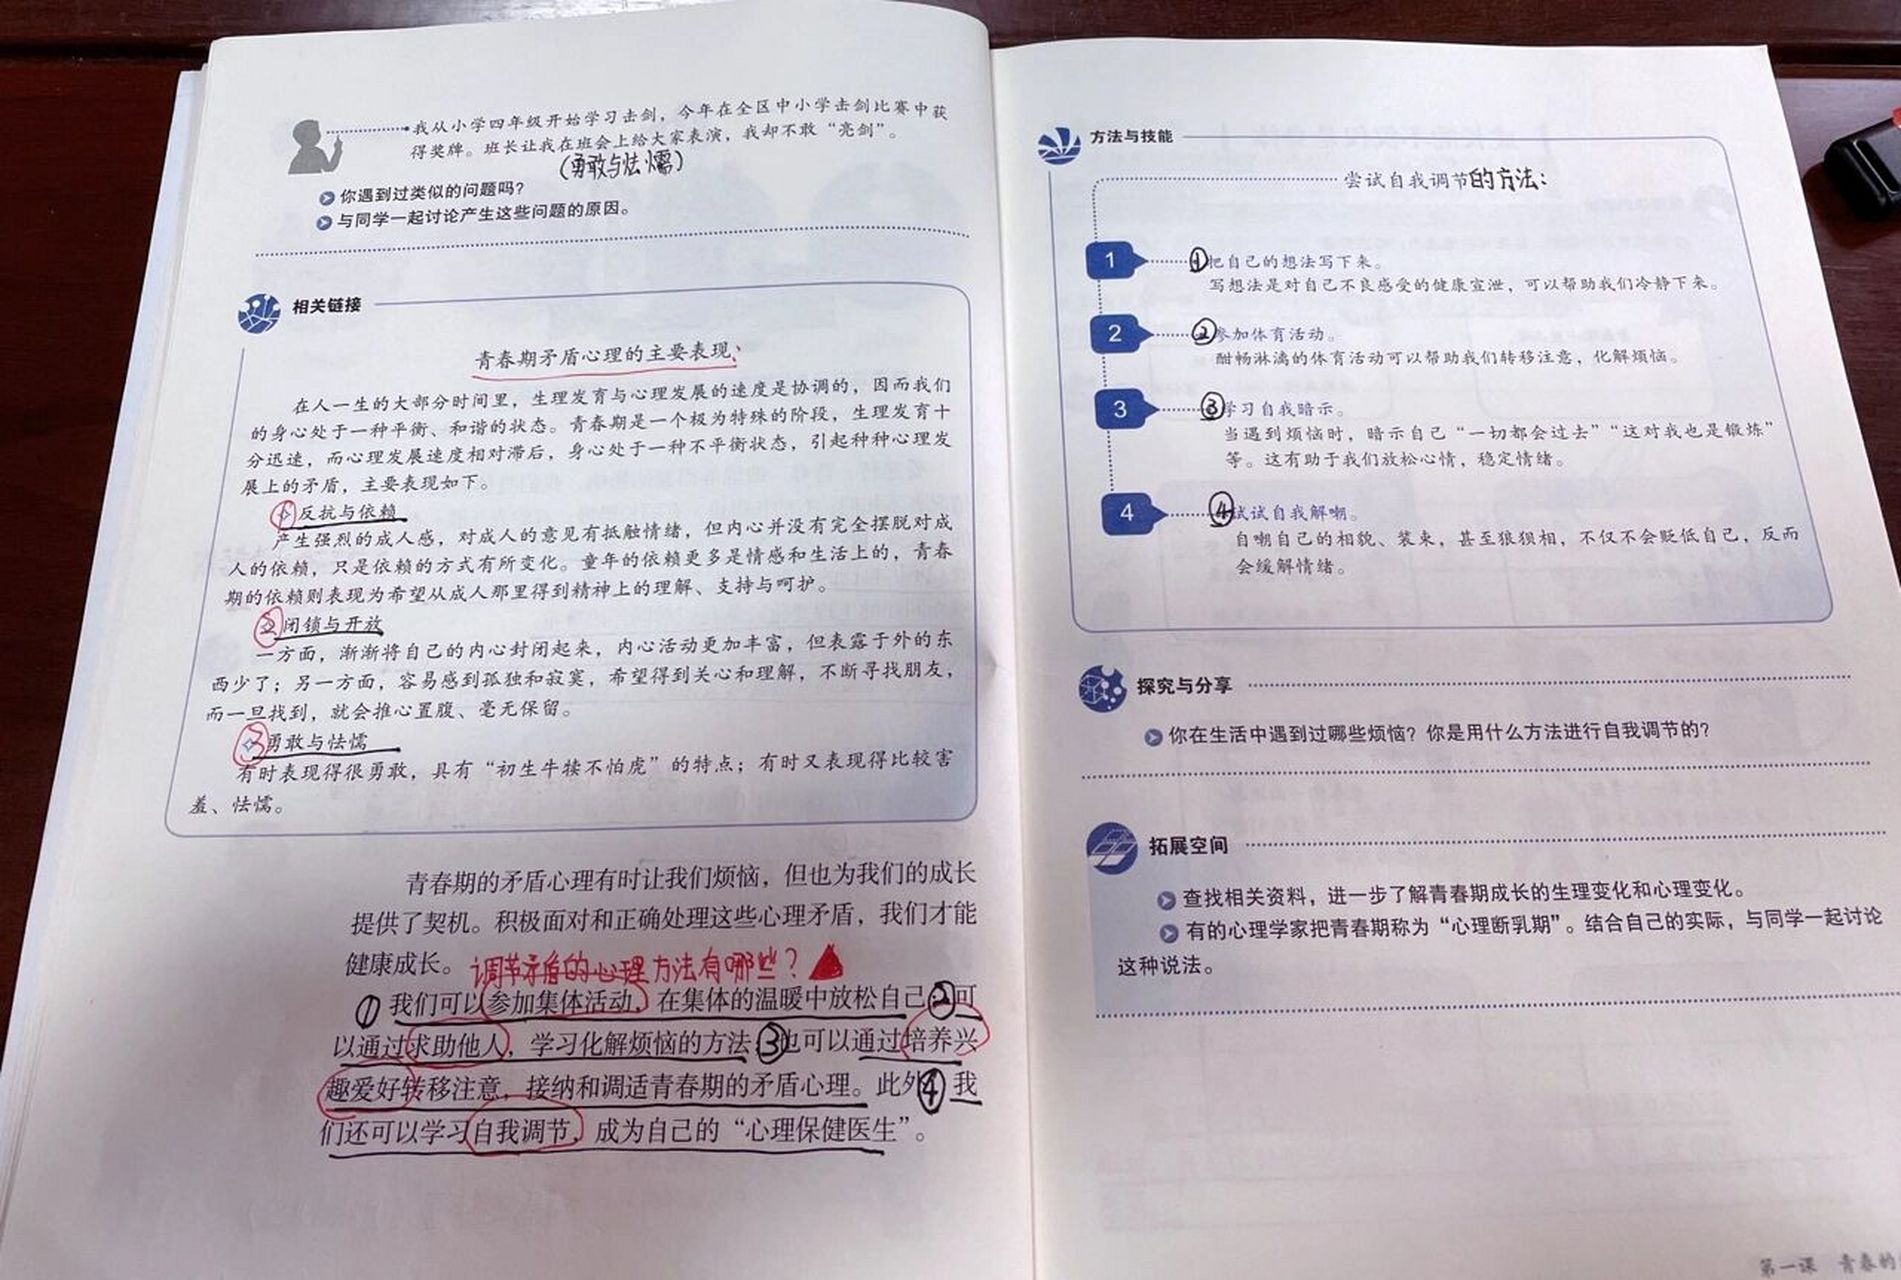 我从小学四年级开始学习击剑，今年在全区中小学击剑比赛中获
得奖牌。班长让我在班会上给大家表演，我却不敢“亮剑”。
（勇敢与怯懦）
你遇到过类似的问题吗？
与同学一起讨论产生这些问题的原因。
相关链接
青春期矛盾心理的主要表现：
在人一生的大部分时间里，生理发育与心理发展的速度是协调的，因而我们
的身心处于一种平衡、和谐的状态。青春期是一个极为特殊的阶段，生理发育十
分迅速，而心理发展速度相对滞后，身心处于一种不平衡状态，引起种种心理发
展上的矛盾，主要表现如下。
反抗与依赖
产生强烈的成人感，对成人的意见有抵触情绪，但内心并没有完全摆脱对成
人的依赖，只是依赖的方式有所变化。童年的依赖更多是情感和生活上的，青春
期的依赖则表现为希望从成人那里得到精神上的理解、支持与呵护。
② 闭锁与开放
一方面，渐渐将自己的内心封闭起来，内心活动更加丰富，但表露于外的东
西少了；另一方面，容易感到孤独和寂寞，希望得到关心和理解，不断寻找朋友，
而一旦找到，就会推心置腹、毫无保留。
③ 勇敢与怯懦
有时表现得很勇敢，具有“初生牛犊不怕虎”的特点；有时又表现得比较害
羞、怯懦。
青春期的矛盾心理有时让我们烦恼，但也为我们的成长
提供了契机。积极面对和正确处理这些心理矛盾，我们才能
健康成长。 调节矛盾的心理方法有哪些？
① 我们可以参加集体活动，在集体的温暖中放松自己②可
以通过求助他人，学习化解烦恼的方法③也可以通过培养兴
趣爱好转移注意，接纳和调适青春期的矛盾心理。此外④我
们还可以学习自我调节，成为自己的“心理保健医生”。
方法与技能
尝试自我调节的方法：
1 ①把自己的想法写下来。
写想法是对自己不良感受的健康宣泄，可以帮助我们冷静下来。
2 ②参加体育活动。
酣畅淋漓的体育活动可以帮助我们转移注意，化解烦恼。
3 ③学习自我暗示。
当遇到烦恼时，暗示自己“一切都会过去”“这对我也是锻炼”
等。这有助于我们放松心情，稳定情绪。
4 ④试试自我解嘲。
自嘲自己的相貌、装束，甚至狼狈相，不仅不会贬低自己，反而
会缓解情绪。
探究与分享
你在生活中遇到过哪些烦恼？你是用什么方法进行自我调节的？
拓展空间
查找相关资料，进一步了解青春期成长的生理变化和心理变化。
有的心理学家把青春期称为“心理断乳期”。结合自己的实际，与同学一起讨论
这种说法。
第一课 青春的